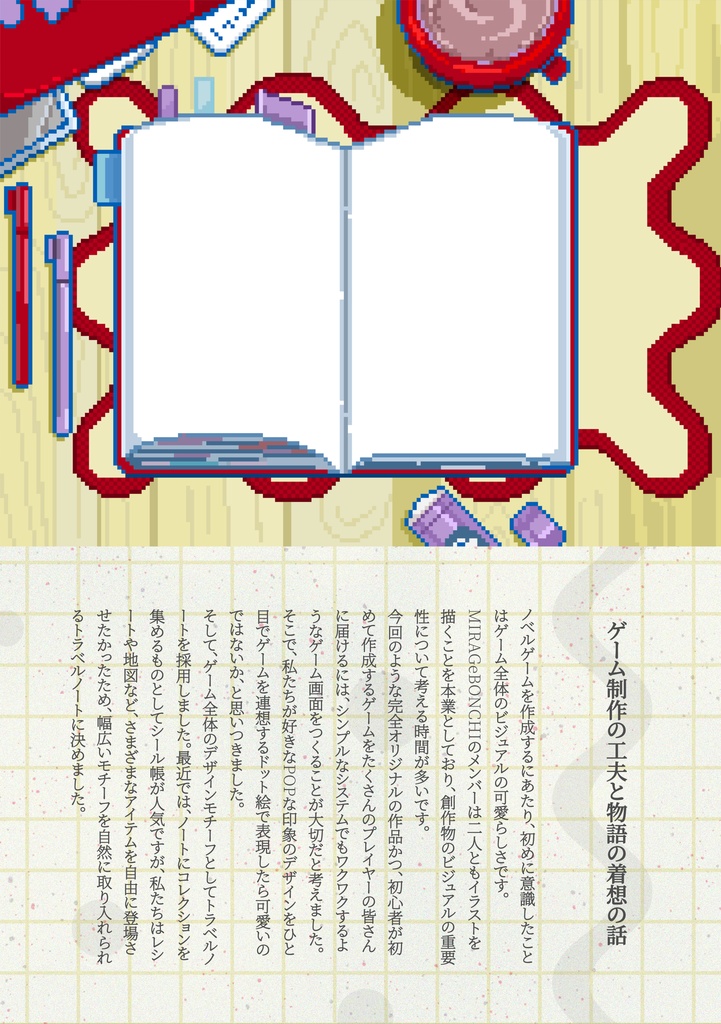 ゲーム制作の工夫と物語の着想の話
ノベルゲームを作成するにあたり、初めに意識したこと
はゲーム全体のビジュアルの可愛らしさです。
MIRAGeBONCHIのメンバーは二人ともイラストを
描くことを本業としており、創作物のビジュアルの重要
性について考える時間が多いです。
今回のような完全オリジナルの作品かつ、初心者が初
めて作成するゲームをたくさんのプレイヤーの皆さん
に届けるには、シンプルなシステムでもワクワクするよ
うなゲーム画面をつくることが大切だと考えました。
そこで、私たちが好きなPOPな印象のデザインをひと
目でゲームを連想するドット絵で表現したら可愛いの
ではないか、と思いつきました。
そして、ゲーム全体のデザインモチーフとしてトラベルノ
ートを採用しました。最近では、ノートにコレクションを
集めるものとしてシール帳が人気ですが、私たちはレシ
ートや地図など、さまざまなアイテムを自由に登場さ
せたかったため、幅広いモチーフを自然に取り入れられ
るトラベルノートに決めました。